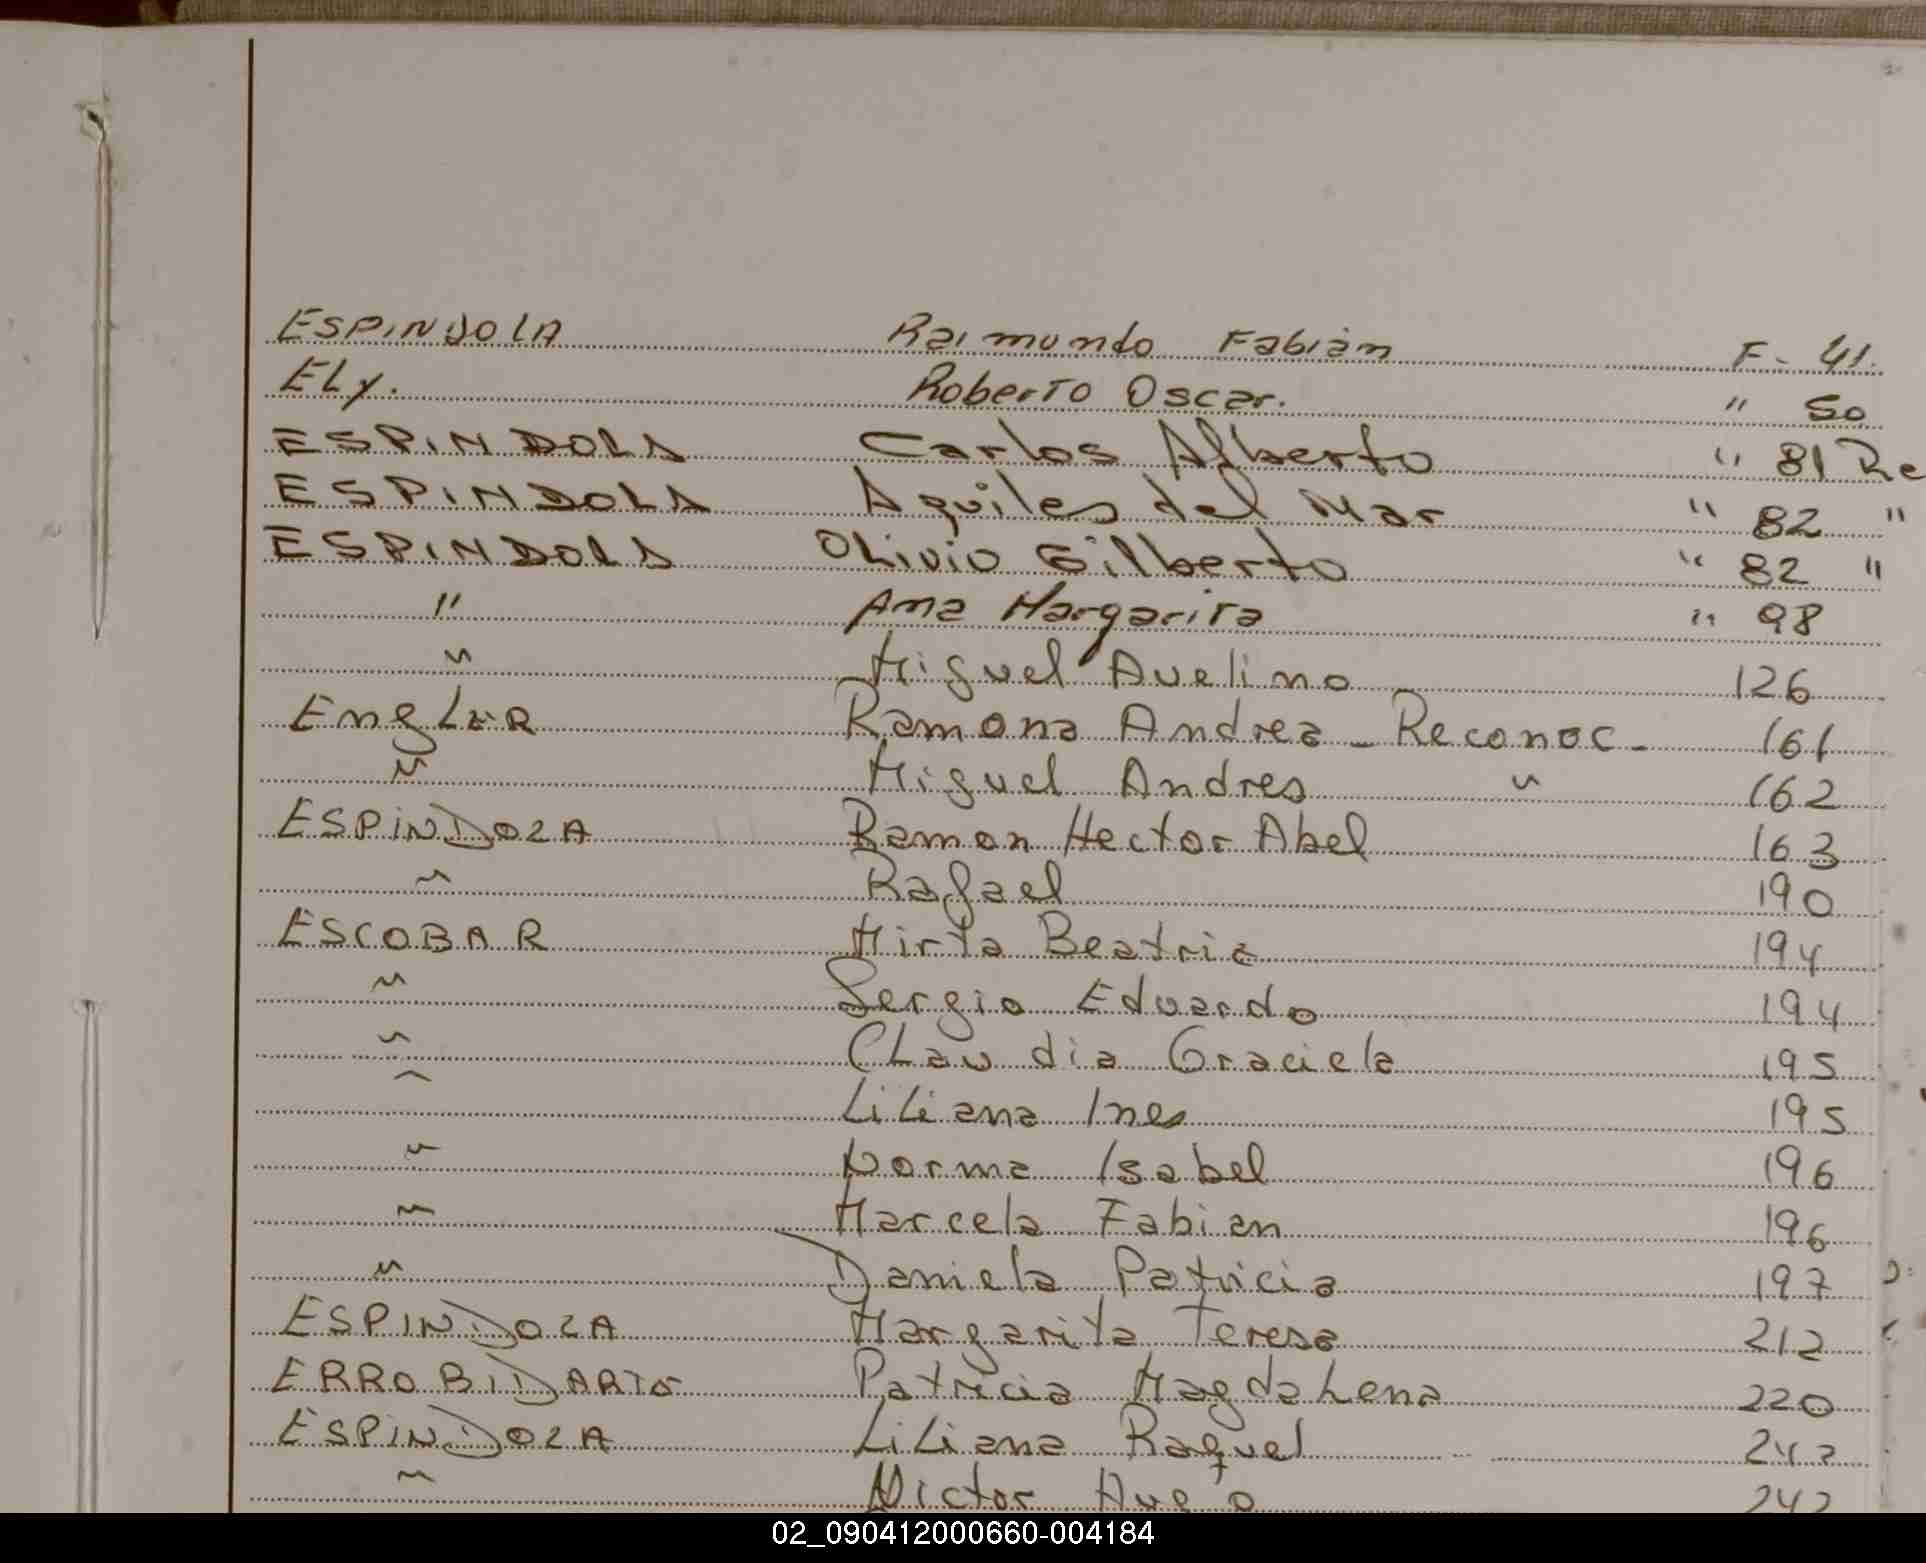 ESPINDOLA Raimundo Fabián F. 41.
ELy. Roberto Oscar. " 50
ESPINDOLA Carlos Alberto " 81 Re
ESPINDOLA Aquiles del Mar " 82 "
ESPINDOLA OLivio Gilberto " 82 "
" Ana Margarita " 98
" Miguel Avelino 126
EngLER Ramona Andrea - Reconoc - 161
" Miguel Andres " 162
ESPINDOLA Ramon Hector Abel 163
" Rafael 190
ESCOBAR Mirta Beatriz 194
" Sergio Eduardo 194
" CLaudia Graciela 195
" LiLiana Ines 195
" Norma Isabel 196
" Marcela Fabian 196
" Daniela Patricia 197
ESPINDOLA Margarita Teresa 212
ERROBIDARTE Patricia MagdaLena 220
ESPINDOLA LiLiana Raquel 242
" Victor 242
02_090412000660-004184